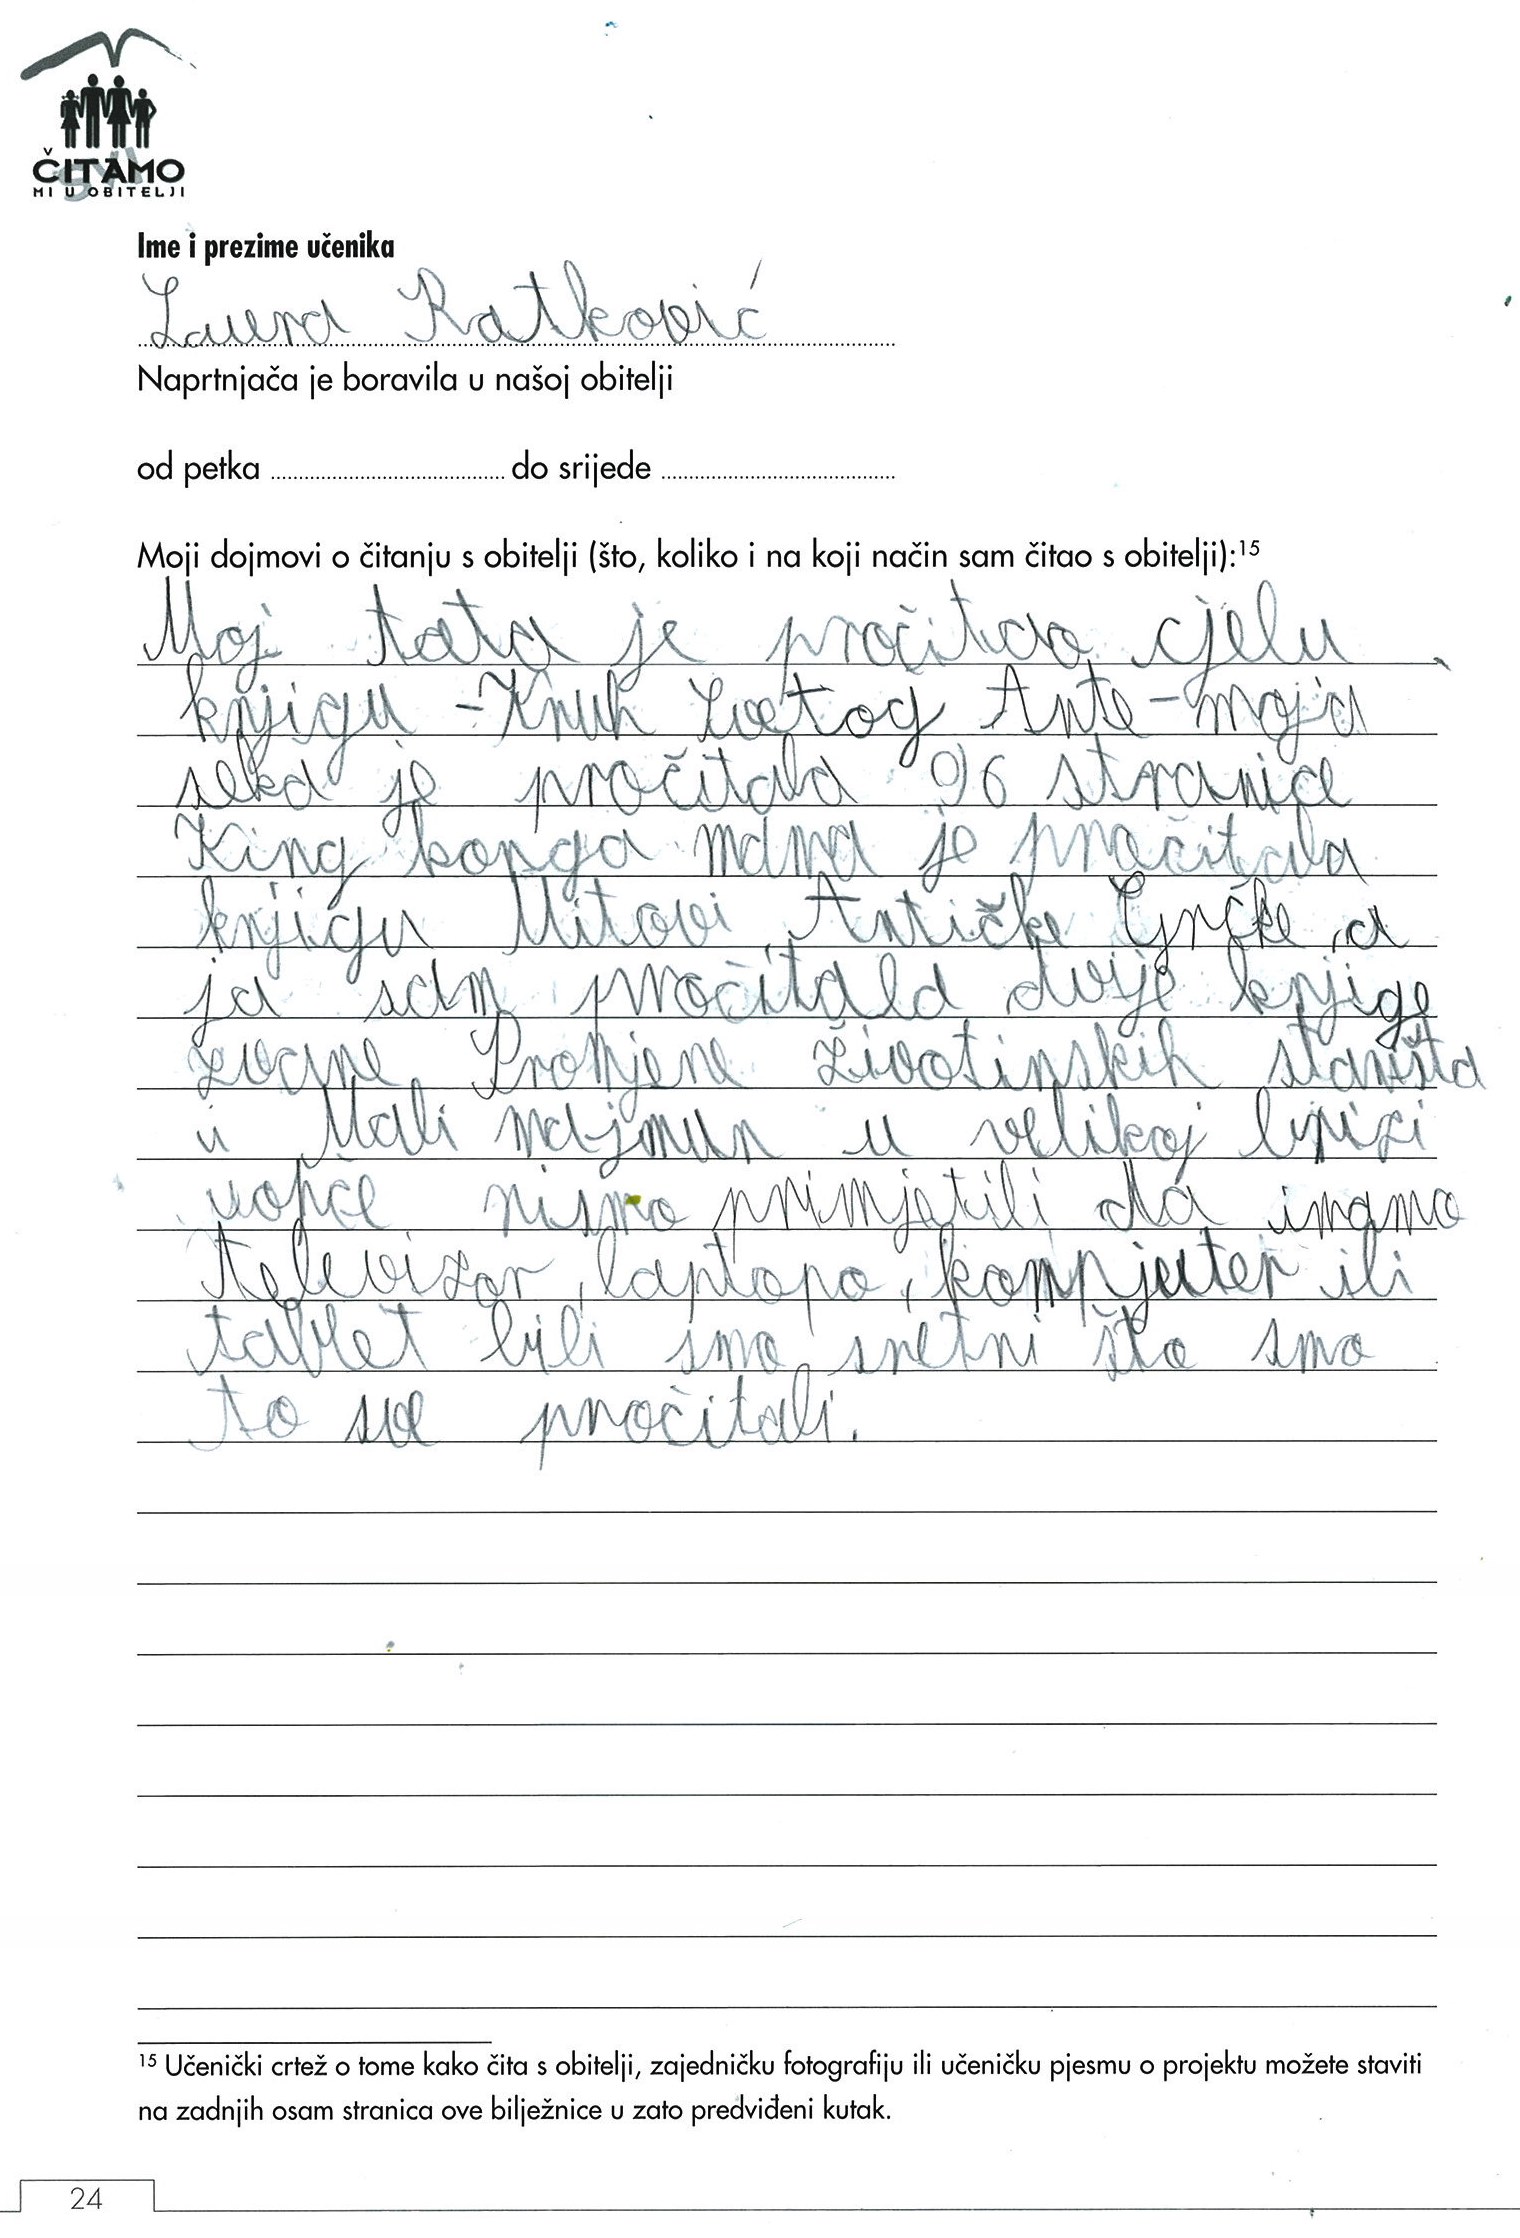 ČITAMO
MI U OBITELJI
Ime i prezime učenika
Laura Ratković
Naprtnjača je boravila u našoj obitelji
od petka ........................ do srijede ........................
Moji dojmovi o čitanju s obitelji (što, koliko i na koji način sam čitao s obitelji):15
Moj tata je pročitao cjelu
knjigu -Kruh Svetog Ante- moja
seka je pročitala 96 stranice
King konga mama je pročitala
knjigu Mitovi Antičke Grčke, a
ja sam pročitala dvije knjige
zvane Promjene životinskih staništa
i Mali majmun u velikoj brizi
uopće nismo primjetili da imamo
televizor, laptopa, kompjuter ili
tablet bili smo sretni što smo
to sve pročitali.
15 Učenički crtež o tome kako čita s obitelji, zajedničku fotografiju ili učeničku pjesmu o projektu možete staviti
na zadnjih osam stranica ove bilježnice u zato predviđeni kutak.
24